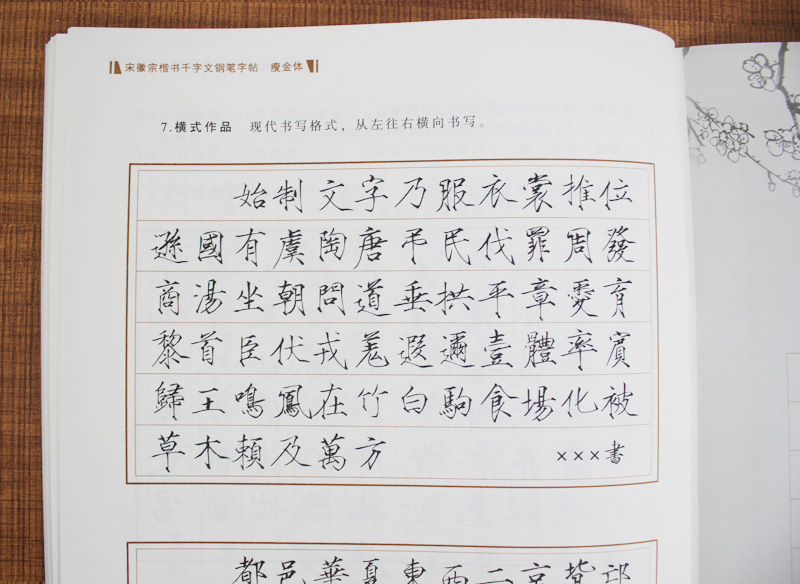 宋徽宗楷书千字文钢笔字帖 瘦金体
7.横式作品 现代书写格式，从左往右横向书写。
始制文字乃服衣裳推位
遜國有虞陶唐弔民伐罪周發
商湯坐朝問道垂拱平章愛育
黎首臣伏戎羌遐邇壹體率賓
歸王鳴鳳在竹白駒食場化被
草木賴及萬方 ×××書
都邑華夏東西二京背邙